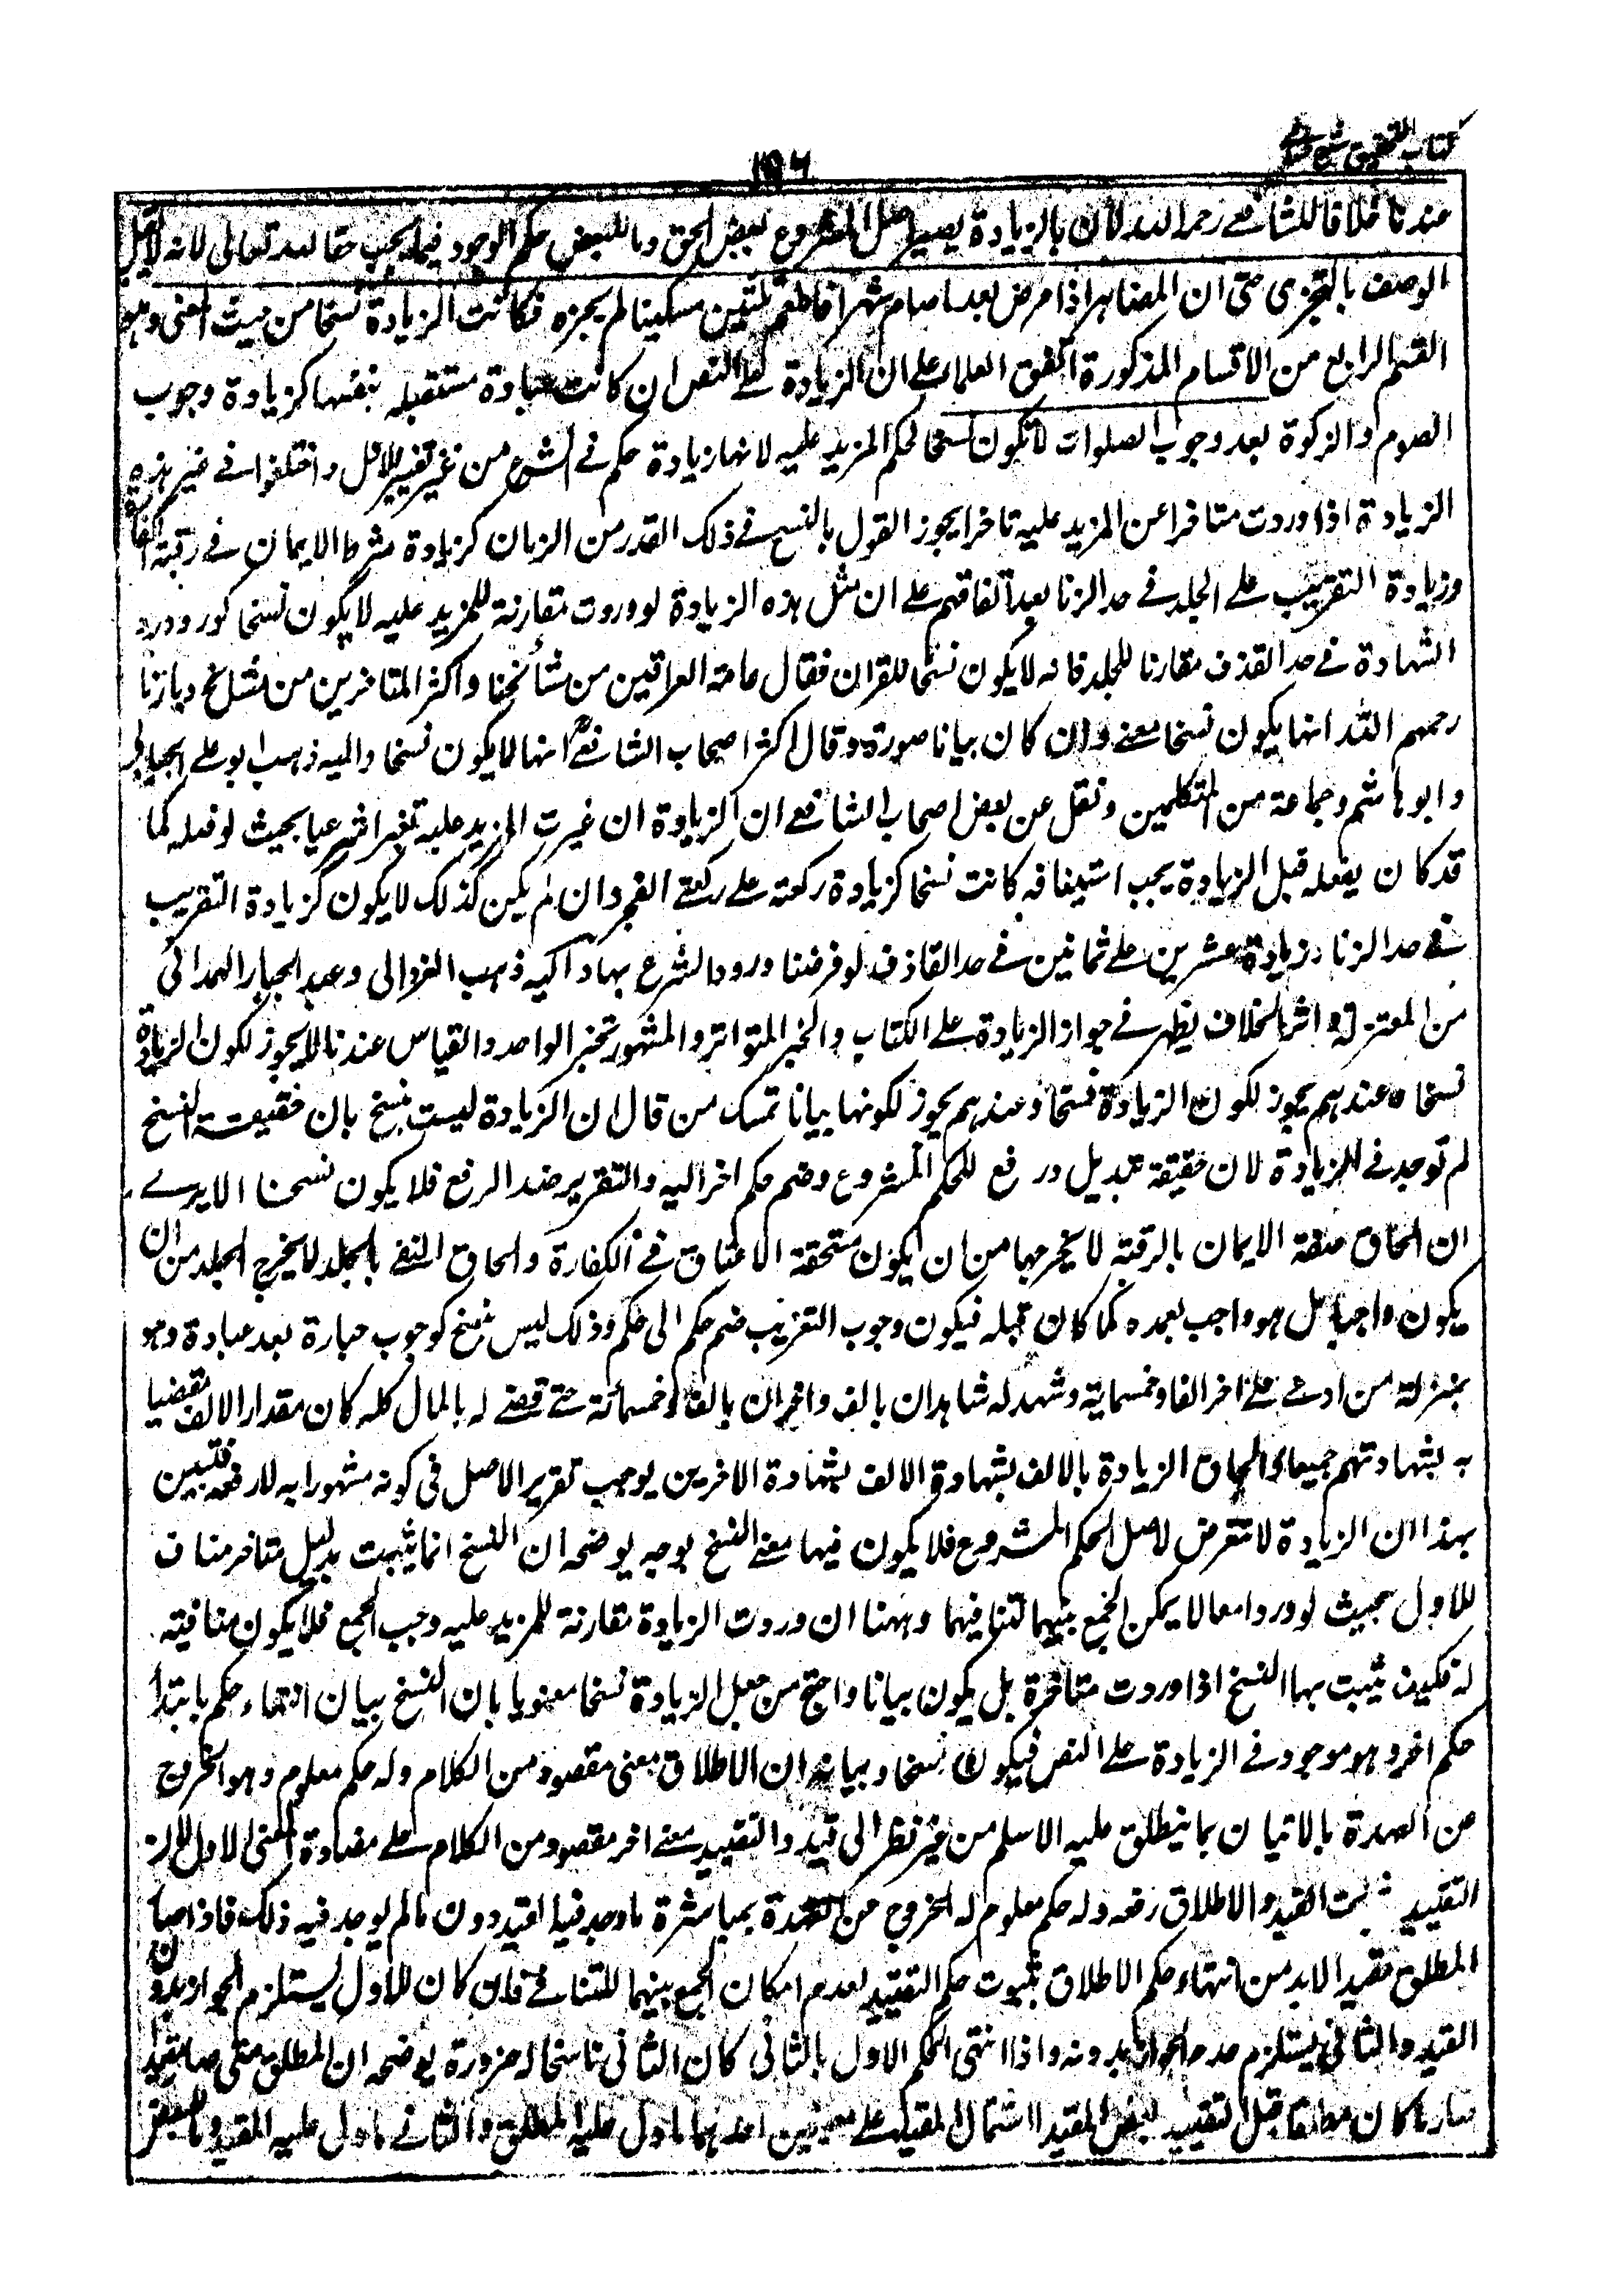 كتاب التحقيق شرح حسامي
١٥٦
عندنا خلافا للشافعے رحمه الله لان بالزيادة يصير اصل المشروع بعض الحق وما للبعض حكم الوجود فيما يجب حقا لله تعالى لانه لا يقبل
الوصف بالتجزى حتى ان المظاهر اذا مرض بعد ما صام شهرا فاطعم ثلثين مسكينا لم يجزه فكانت الزيادة نسخا من حيث المعنى وهو
القسم الرابع من الاقسام المذكورة اتفق العلماء على ان الزيادة على النص ان كانت عبادة مستقبله بنفسها كزيادة وجوب
الصوم والزكوة بعد وجوب الصلوات لا يكون نسخا لحكم المزيد عليه لانها زيادة حكم في الشرع من غير تغيير للاول واختلفوا في غير هذه
الزيادة اذا وردت متاخرا عن المزيد عليه تاخرا يجوز القول بالنسخ في ذلك القدر من الزمان كزيادة شرط الايمان في رقبة الكفارة
وزيادة التغريب على الجلد في حد الزنا بعد اتفاقهم على ان مثل هذه الزيادة لو وردت مقارنة للمزيد عليه لا يكون نسخا كورود رد
الشهادة في حد القذف مقارنا للجلد فانه لا يكون نسخا للقران فقال عامة العراقين من مشائخنا واكثر المتاخرين من مشايخ ديارنا
رحمهم الله انها يكون نسخا معنے وان كان بيانا صورة وقال اكثر اصحاب الشافعے انها لا يكون نسخا واليه ذهب ابو على الجبائى
وابو هاشم وجماعة من المتكلمين ونقل عن بعض اصحاب الشافعے ان الزيادة ان غيرت المزيد عليه تغييرا شرعيا بحيث لو فعله كما
قد كان يفعله قبل الزيادة يجب استينافه كانت نسخا كزيادة ركعة على ركعتے الفجر وان لم يكن كذلك لا يكون كزيادة التغريب
في حد الزنا وزيادة عشرين على ثمانين في حد القاذف لو فرضنا ورود الشرع بها واليه ذهب الغزالى وعبد الجبار الهمدانى
من المعتزلة واثر الخلاف يظهر في جواز الزيادة على الكتاب والخبر المتواتر والمشهور بخبر الواحد والقياس عندنا لا يجوز لكون الزيادة
نسخا وعندهم يجوز لكون الزيادة نسخا وعندهم يجوز لكونها بيانا تمسك من قال ان الزيادة ليست بنسخ بان حقيقة النسخ
لم توجد في الزيادة لان حقيقة تبديل ورفع للحكم المشروع وضم حكم اخر اليه والتقرير ضد الرفع فلا يكون نسخا الا يرے
ان الحاق صفة الايمان بالرقبة لا يخرجها من ان يكون مستحقة الاعتاق في الكفارة والحاق النفے بالجلد لا يخرج الجلد من ان
يكون واجبا بل هو واجب بعده كما كان قبله فيكون وجوب التغريب ضم حكم الى حكم وذلك ليس بنسخ كوجوب عبارة بعد عبادة وهو
بمنزلة من ادعے على اخر الفا وخمسماية وشهد له شاهدان بالف واخران بالف وخمسمائة حتے قضے له بالمال كله كان مقدار الالف مقضيا
به بشهادتهم جميعا والحاق الزيادة بالالف بشهادة الالف بشهادة الاخرين يوجب تقرير الاصل فى كونه مشهورا به لا رفعه فتبين
بهذا ان الزيادة لا تتعرض لاصل الحكم المشروع فلا يكون فيها معنے النسخ بوجه يوضحه ان النسخ انما يثبت بدليل متاخر مناف
للاول بحيث لو وردا معا لا يمكن الجمع بينهما لتنافيهما وههنا ان وردت الزيادة مقارنة للمزيد عليه وجب الجمع فلا يكون منافية
له فكيف يثبت بها النسخ اذا وردت متاخرة بل يكون بيانا واحتج من جعل الزيادة نسخا معنويا بان النسخ بيان انتهاء حكم بابتداء
حكم اخر وهو موجود في الزيادة على النص فيكون نسخا وبيانه ان الاطلاق معنى مقصود من الكلام وله حكم معلوم وهو الخروج
من العهدة بالاتيان بما ينطلق عليه الاسم من غير نظر الى قيد والتقييد معنے اخر مقصود من الكلام على مضادة المعنى الاول لان
التقييد ثبت القيد والاطلاق رفعه وله حكم معلوم له الخروج من العهدة بمباشرة ما وجد فيه القيد دون ما لم يوجد فيه ذلك فاذا صار
المطلق مقيدا لا بد من انتهاء حكم الاطلاق بثبوت حكم التقييد لعدم امكان الجمع بينهما للتنافے فان كان الاول يستلزم الجواز بدون
القيد والثاني يستلزم عدم الجواز بدونه واذا انتهى الحكم الاول بالثانى كان الثانى ناسخا له ضرورة يوضحه ان المطلق متى صار مقيدا
صار ما كان مطلقا قبل التقييد بعض المقيد اشتمال المقيد على معنيين احدهما ما دل عليه المطلق والثانے ما دل عليه المقيد وما للبعض